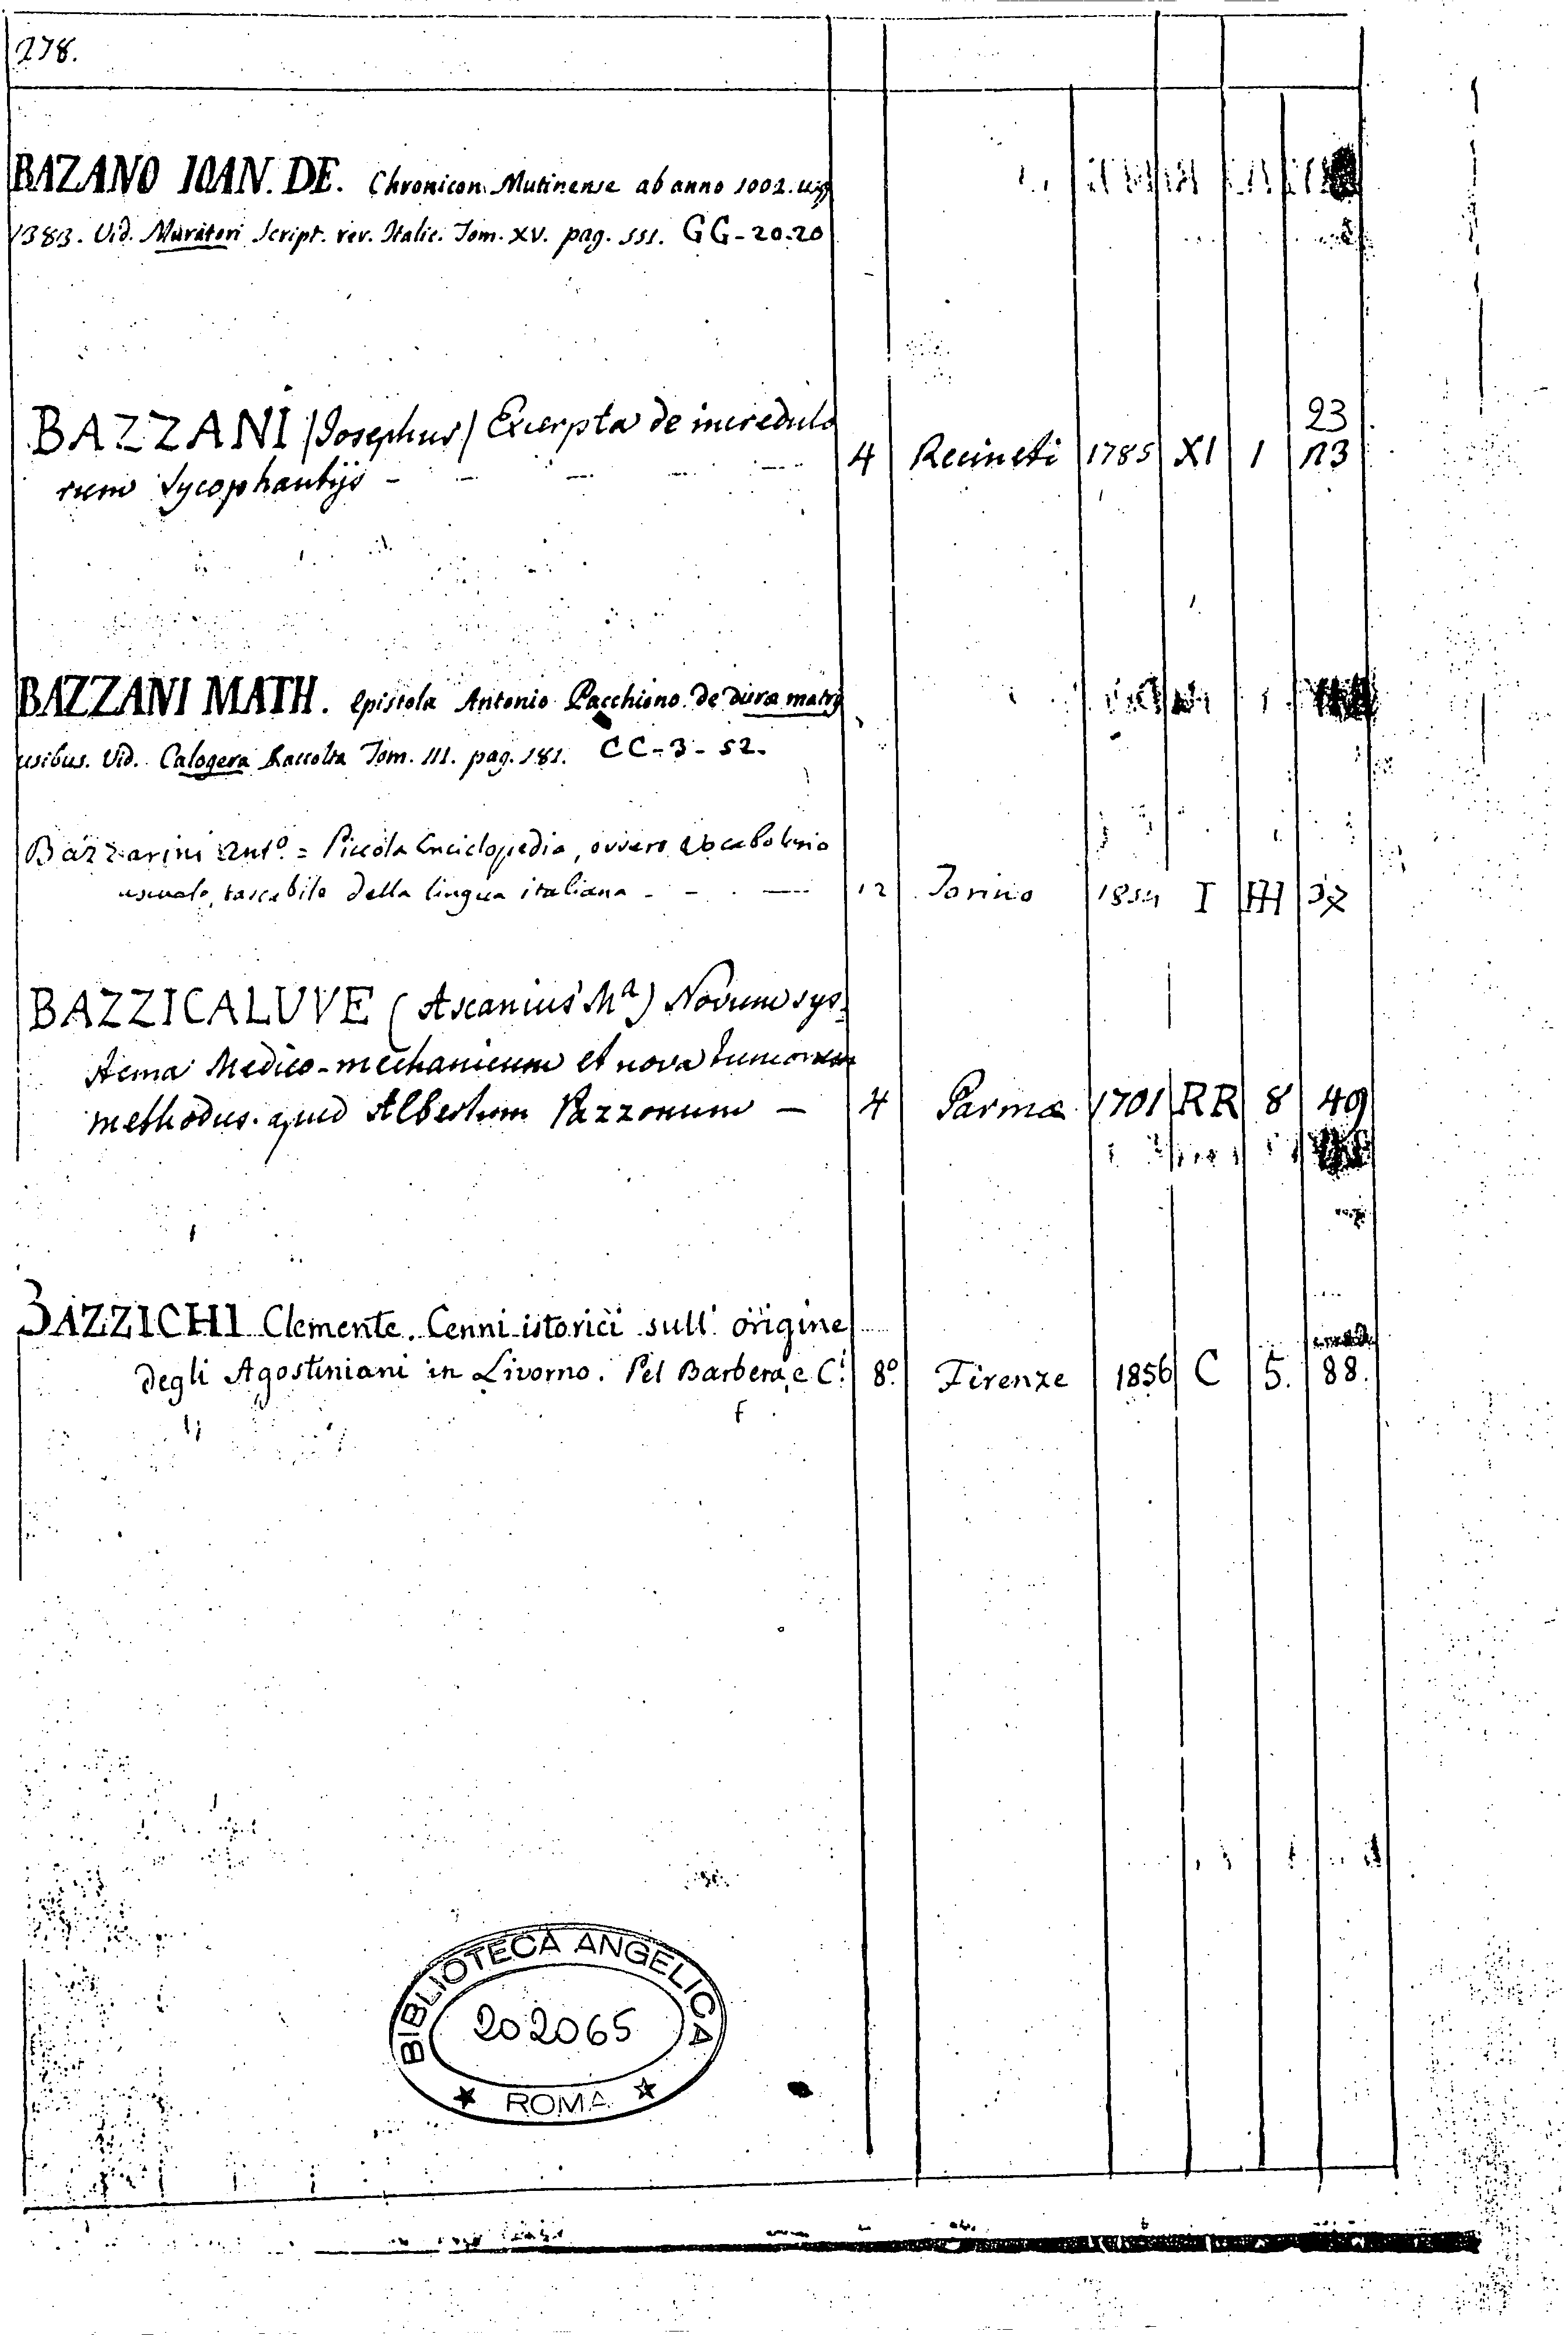 278.
BAZANO IOAN. DE. Chronicon Mutinense ab anno 1002. usq
1383. Vid. Muratori Script. rer. Italic. Tom. XV. pag. 551. GG-20-20
BAZZANI (Josephus) Excerpta de incredulo
23
rum Sycophantijs - 4 Recineti 1785 XI 1 
BAZZANI MATH. Epistola Antonio Pacchiono de duræ matris
usibus. Vid. Calogera Raccolta Tom. III. pag. 181. CC-3-52.
Bazzarini Anto. = Piccola Enciclopedia, ovvero Vocabolario
usuale, tascabile della lingua italiana - 12 Torino I HH 37
BAZZICALUVE (Ascanius Ma) Novum sys-
tema Medico-mechanicum et nova tumorum
methodus. apud Albertum Pazzonum — 4 Parmæ 1701 RR 8 49
BAZZICHI Clemente. Cenni istorici sull' origine
degli Agostiniani in Livorno. Pel Barbera, e Ci. 8o. Firenze 1856 C 5. 88.
f
BIBLIOTECA ANGELICA
202065
ROMA